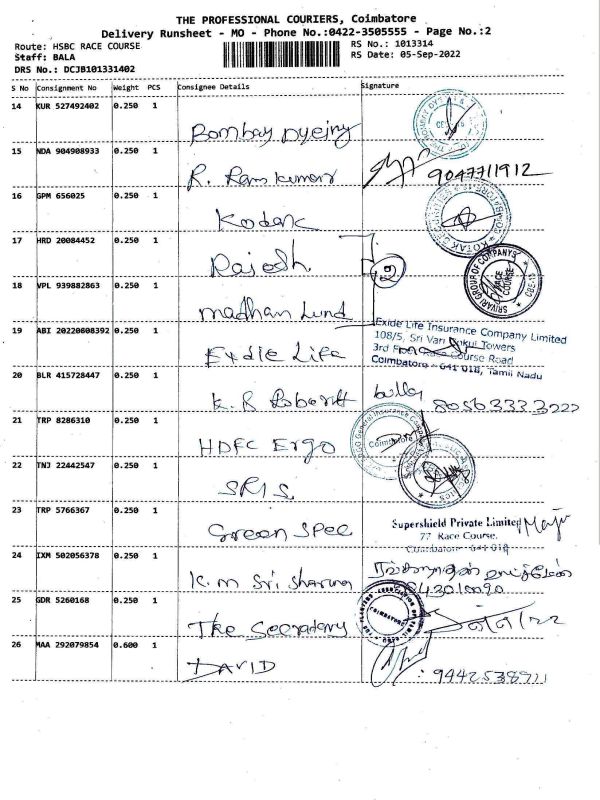 THE PROFESSIONAL COURIERS, Coimbatore
Delivery Runsheet - MO - Phone No.:0422-3505555 - Page No.:2
Route: HSBC RACE COURSE
RS No.: 1013314
Staff: BALA
RS Date: 05-Sep-2022
DRS No.: DCJB101331402
S No Consignment No Weight PCS Consignee Details Signature
14 KUR 527492402 0.250 1 Bombay Dyeing
15 NDA 904908933 0.250 1 R. Ram kumar 9047711912
16 GPM 656025 0.250 1 Kodak
17 HRD 20084452 0.250 1 Rajesh
SRIVARI GROUP OF COMPANYS RACE COURSE CBE-18
18 VPL 939882863 0.250 1 Madhan Lund
19 ABI 20220608392 0.250 1 Exdie Life
Exide Life Insurance Company Limited
108/5, Sri Vari Gokul Towers
3rd Floor, Race Course Road
Coimbatore - 641 018, Tamil Nadu
20 BLR 415728447 0.250 1 K. R
21 TRP 8286310 0.250 1 HDFC Ergo
Coimbatore
22 TNJ 22442547 0.250 1 SRIS
23 TRP 5766367 0.250 1 Green Spec
Supershield Private Limited
77 Race Course,
Coimbatore - 641 018
24 IXM 502056378 0.250 1 K. M Sri Sharma
25 GDR 5260168 0.250 1 The Secratary
COIMBATORE
26 MAA 292079854 0.600 1 DAVID
: 9442538911